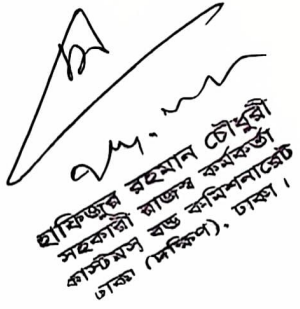 হাফিজুর রহমান চৌধুরী
সহকারী রাজস্ব কর্মকর্তা
কাস্টমস্ বন্ড কমিশনারেট
ঢাকা (দক্ষিণ). ঢাকা।